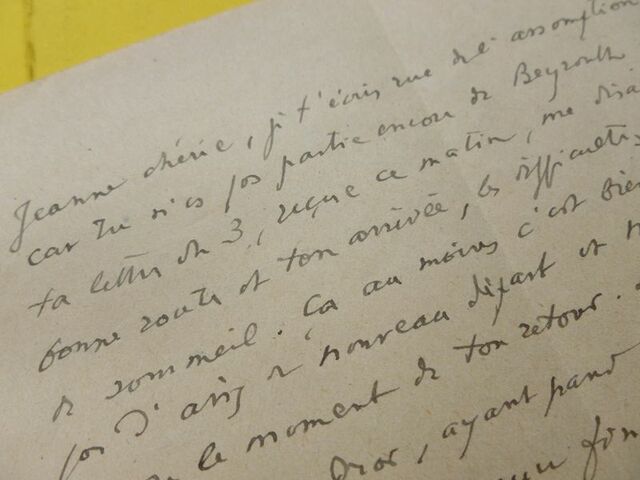 Jeanne chérie, je t'écris rue de l'assomption
car tu n'es pas partie encore de Beyrouth
ta lettre du 3, reçue ce matin, me disa
bonne route et ton arrivée, les difficultés
de sommeil. Ça au moins c'est bien
pas d'avis de nouveau départ et
le moment de ton retour.
ayant pand